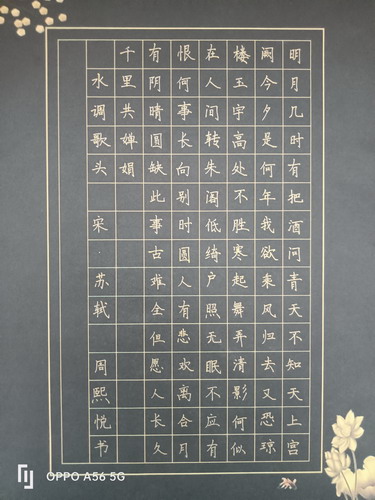 明月几时有把酒问青天不知天上宫
阙今夕是何年我欲乘风归去又恐琼
楼玉宇高处不胜寒起舞弄清影何似
在人间转朱阁低绮户照无眠不应有
恨何事长向别时圆人有悲欢离合月
有阴晴圆缺此事古难全但愿人长久
千里共婵娟
水调歌头 宋·苏轼 周熙悦书
OPPO A56 5G